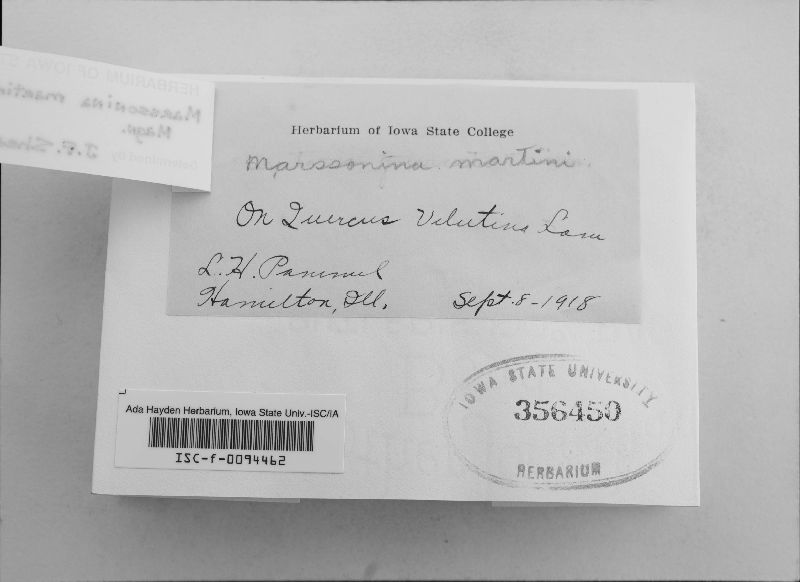 Herbarium of Iowa State College
Marssonina martini
On Quercus Velutina Lam
L. H. Pammel
Hamilton, Ill. Sept. 8-1918
IOWA STATE UNIVERSITY
356450
HERBARIUM
Ada Hayden Herbarium, Iowa State Univ.-ISC/IA
ISC-f-0094462
HERBARIUM OF IOWA
Marssonina
Magn.
Determined By J.F.